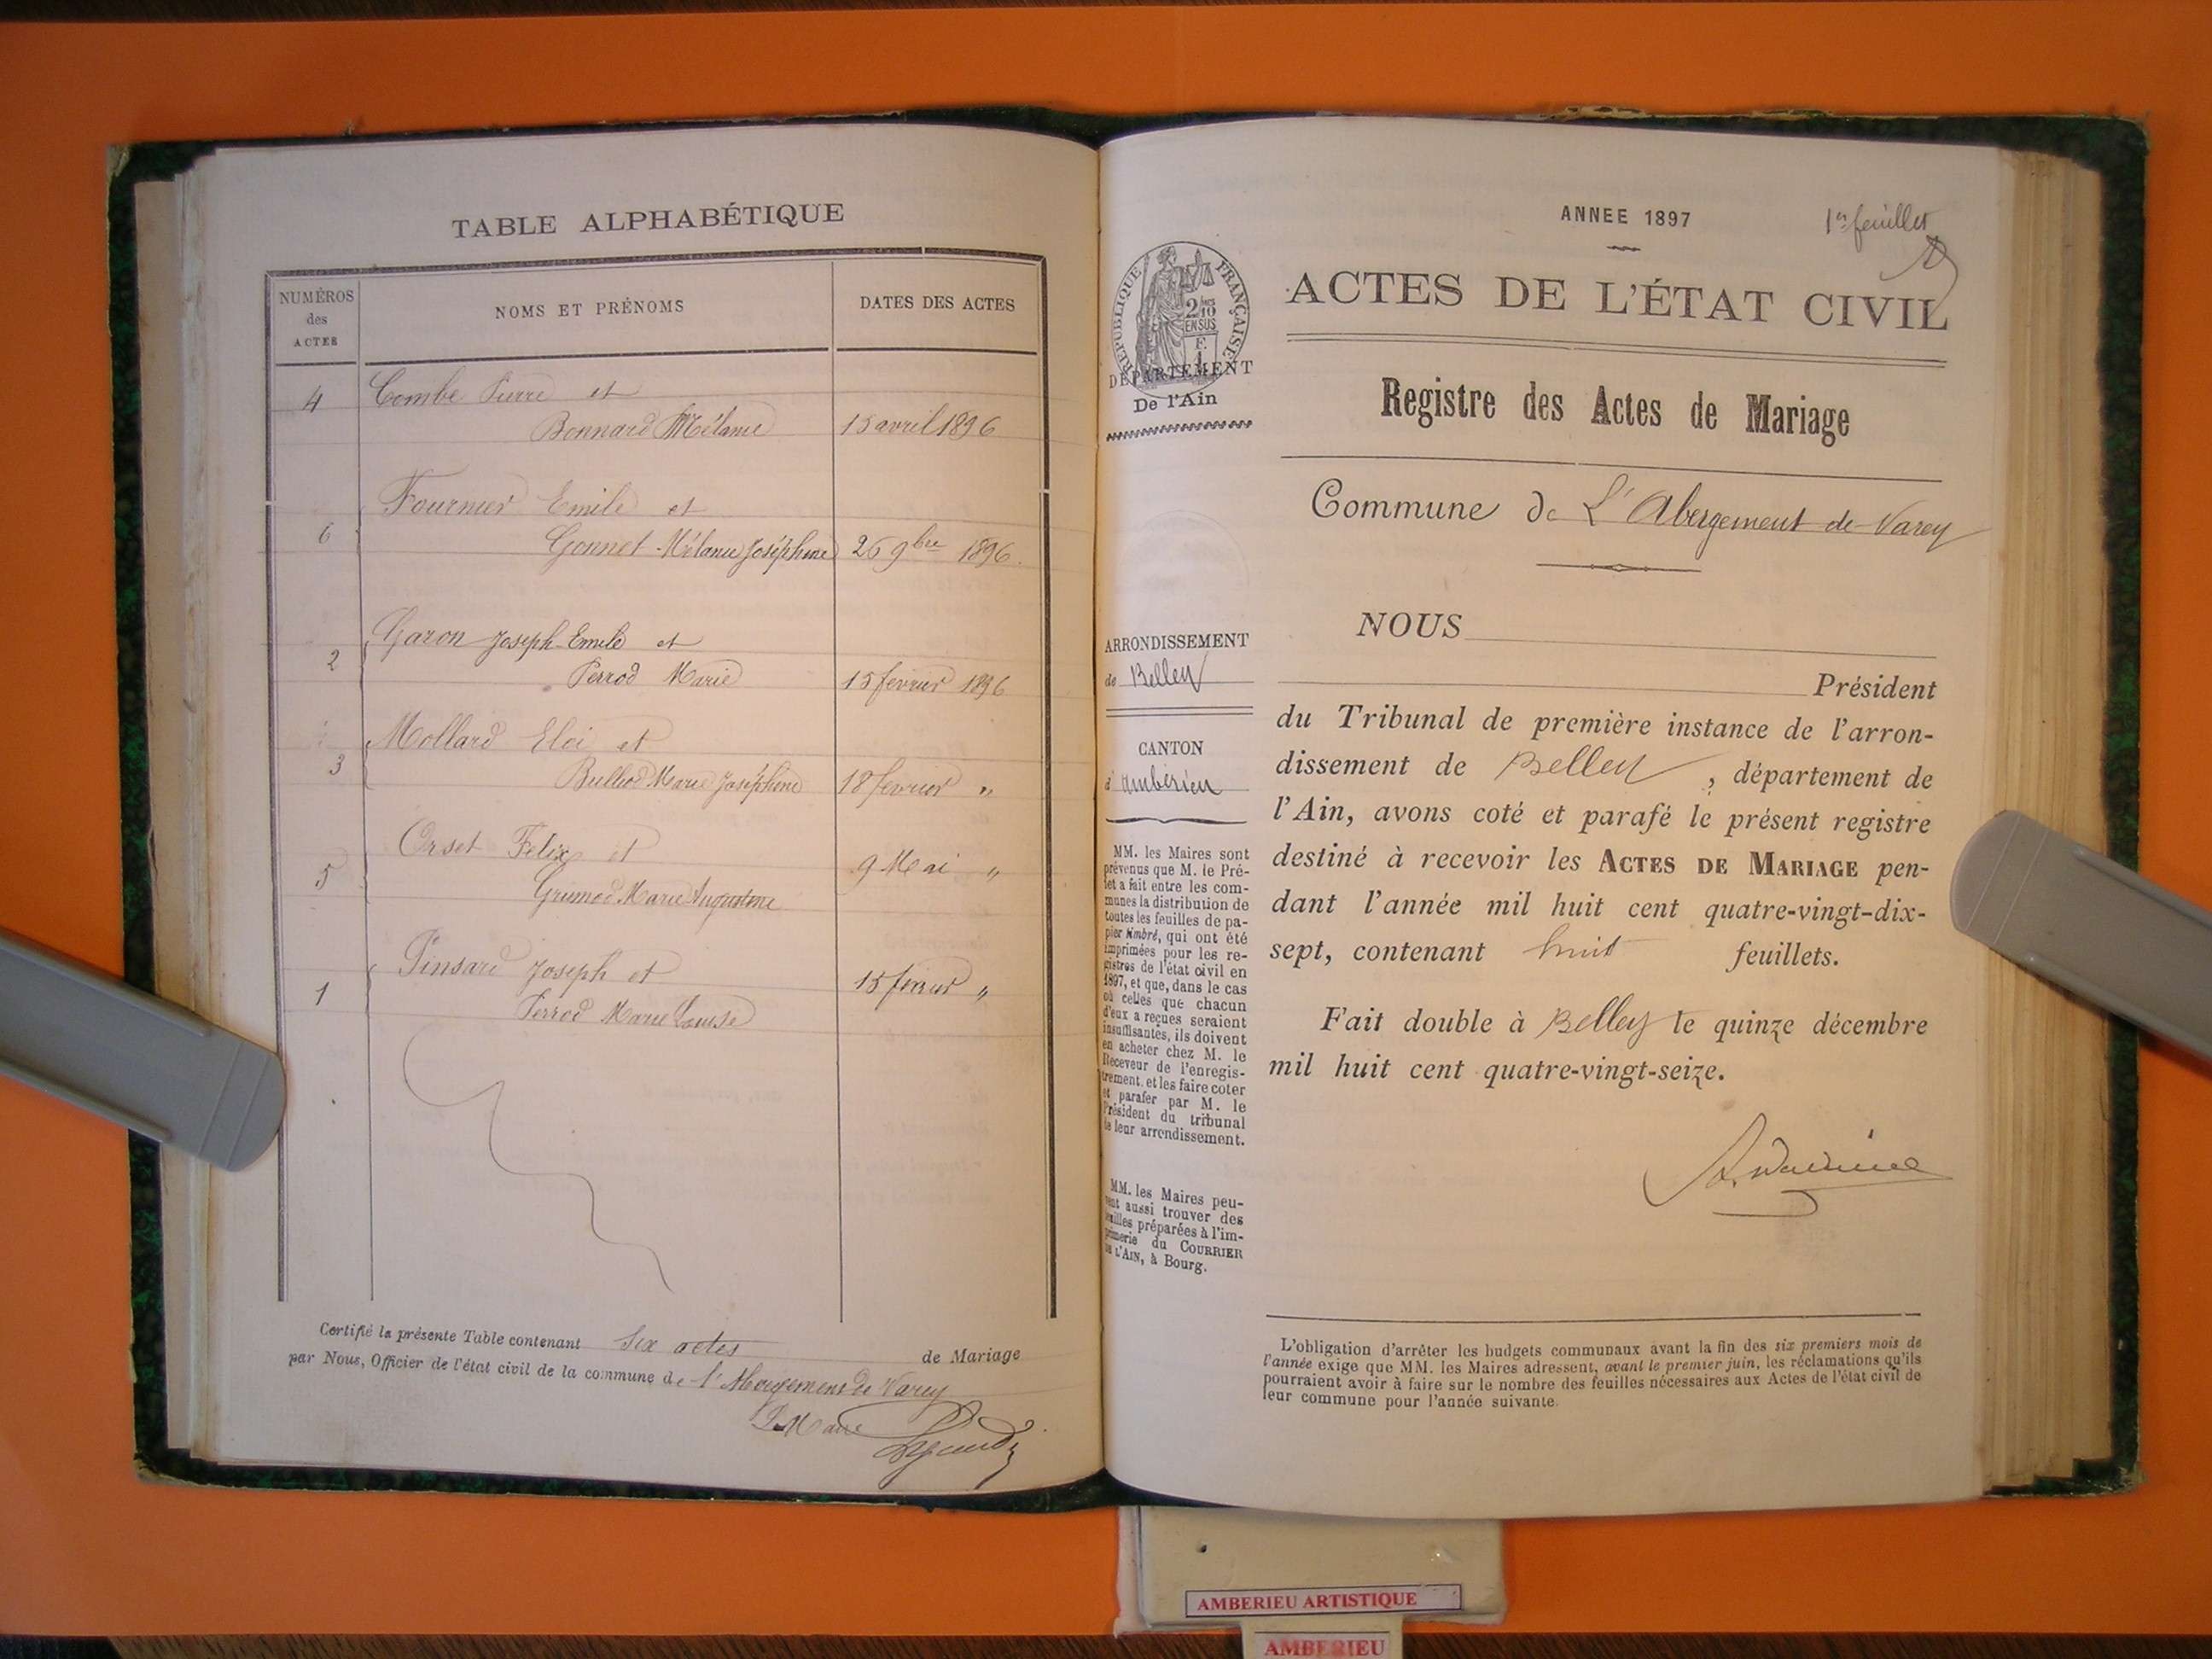 TABLE ALPHABÉTIQUE
NUMÉROS
des
ACTES
NOMS ET PRÉNOMS
DATES DES ACTES
4
Combe Pierre et
Bonnard Mélanie
15 avril 1896
Fournier Emile et
6
Gonnet Mélanie Joséphine
26 9bre 1896
Garon Joseph Emile et
2
Perrod Marie
15 février 1896
Mollard Eloi et
3
Marie Joséphine
18 février "
Orset Felix et
9 Mai "
5
Marie Augustine
Pinsard Joseph et
15 février "
1
Perrod Marie Louise
Certifié la présente Table contenant six actes de Mariage
par Nous, Officier de l'état civil de la commune de l'Abergement de Varey
Le Maire
ANNEE 1897
1er feuillet
RÉPUBLIQUE FRANÇAISE
2/10
EN SUS
DÉPARTEMENT
De l'Ain
ACTES DE L'ÉTAT CIVIL
Registre des Actes de Mariage
Commune de L'Abergement de Varey
ARRONDISSEMENT
de Belley
CANTON
d'Ambérieu
MM. les Maires sont
prévenus que M. le Pré-
fet a fait entre les com-
munes la distribution de
toutes les feuilles de pa-
pier timbré, qui ont été
imprimées pour les re-
gistres de l'état civil en
1897, et que, dans le cas
où celles que chacun
d'eux a reçues seraient
insuffisantes, ils doivent
en acheter chez M. le
Receveur de l'enregis-
trement, et les faire coter
et parafer par M. le
Président du tribunal
de leur arrondissement.
MM. les Maires peu-
vent aussi trouver des
feuilles préparées à l'im-
primerie du COURRIER
DE L'AIN, à Bourg.
NOUS
Président
du Tribunal de première instance de l'arron-
dissement de Belley, département de
l'Ain, avons coté et parafé le présent registre
destiné à recevoir les ACTES DE MARIAGE pen-
dant l'année mil huit cent quatre-vingt-dix-
sept, contenant huit feuillets.
Fait double à Belley le quinze décembre
mil huit cent quatre-vingt-seize.
L'obligation d'arrêter les budgets communaux avant la fin des six premiers mois de
l'année exige que MM. les Maires adressent, avant le premier juin, les réclamations qu'ils
pourraient avoir à faire sur le nombre des feuilles nécessaires aux Actes de l'état civil de
leur commune pour l'année suivante.
AMBERIEU ARTISTIQUE
AMBERIEU